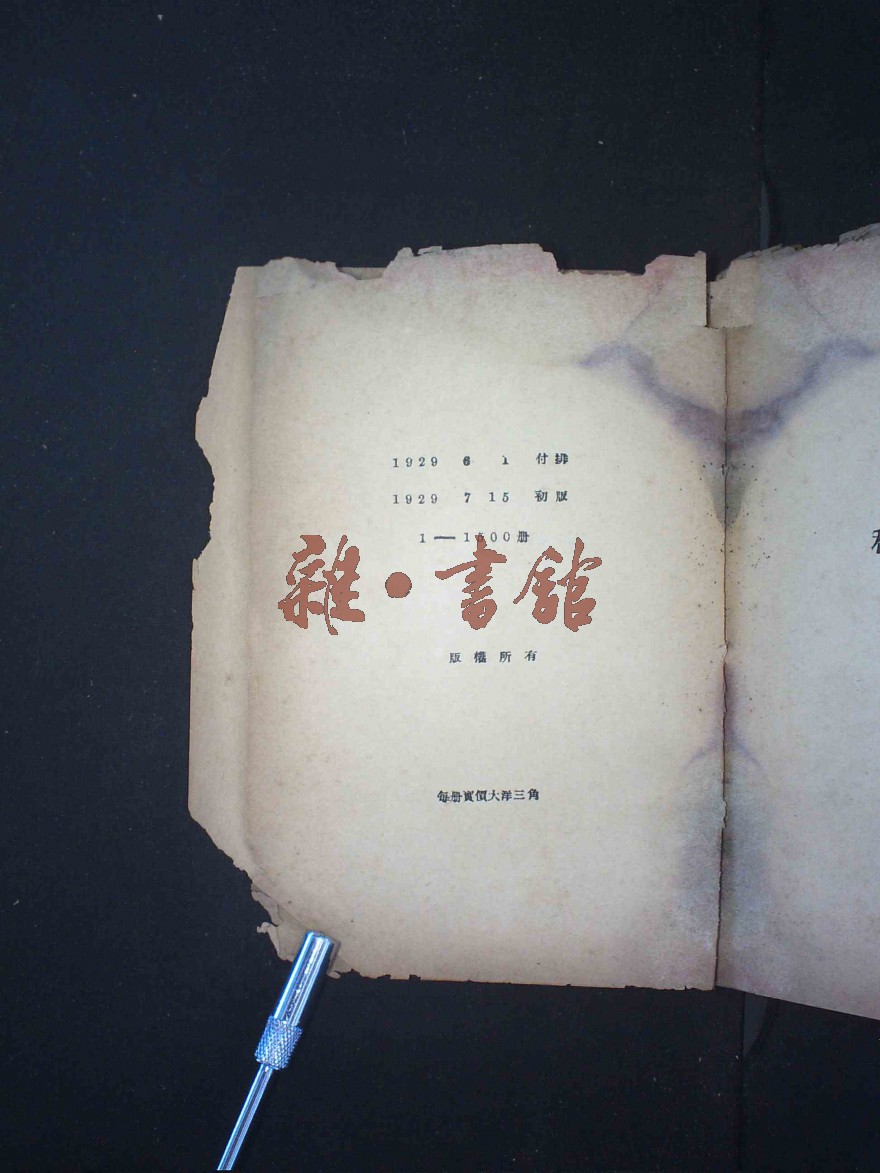 1929 6 1 付排
1929 7 15 初版
1—1500册
雜·書館
版權所有
每册實價大洋三角